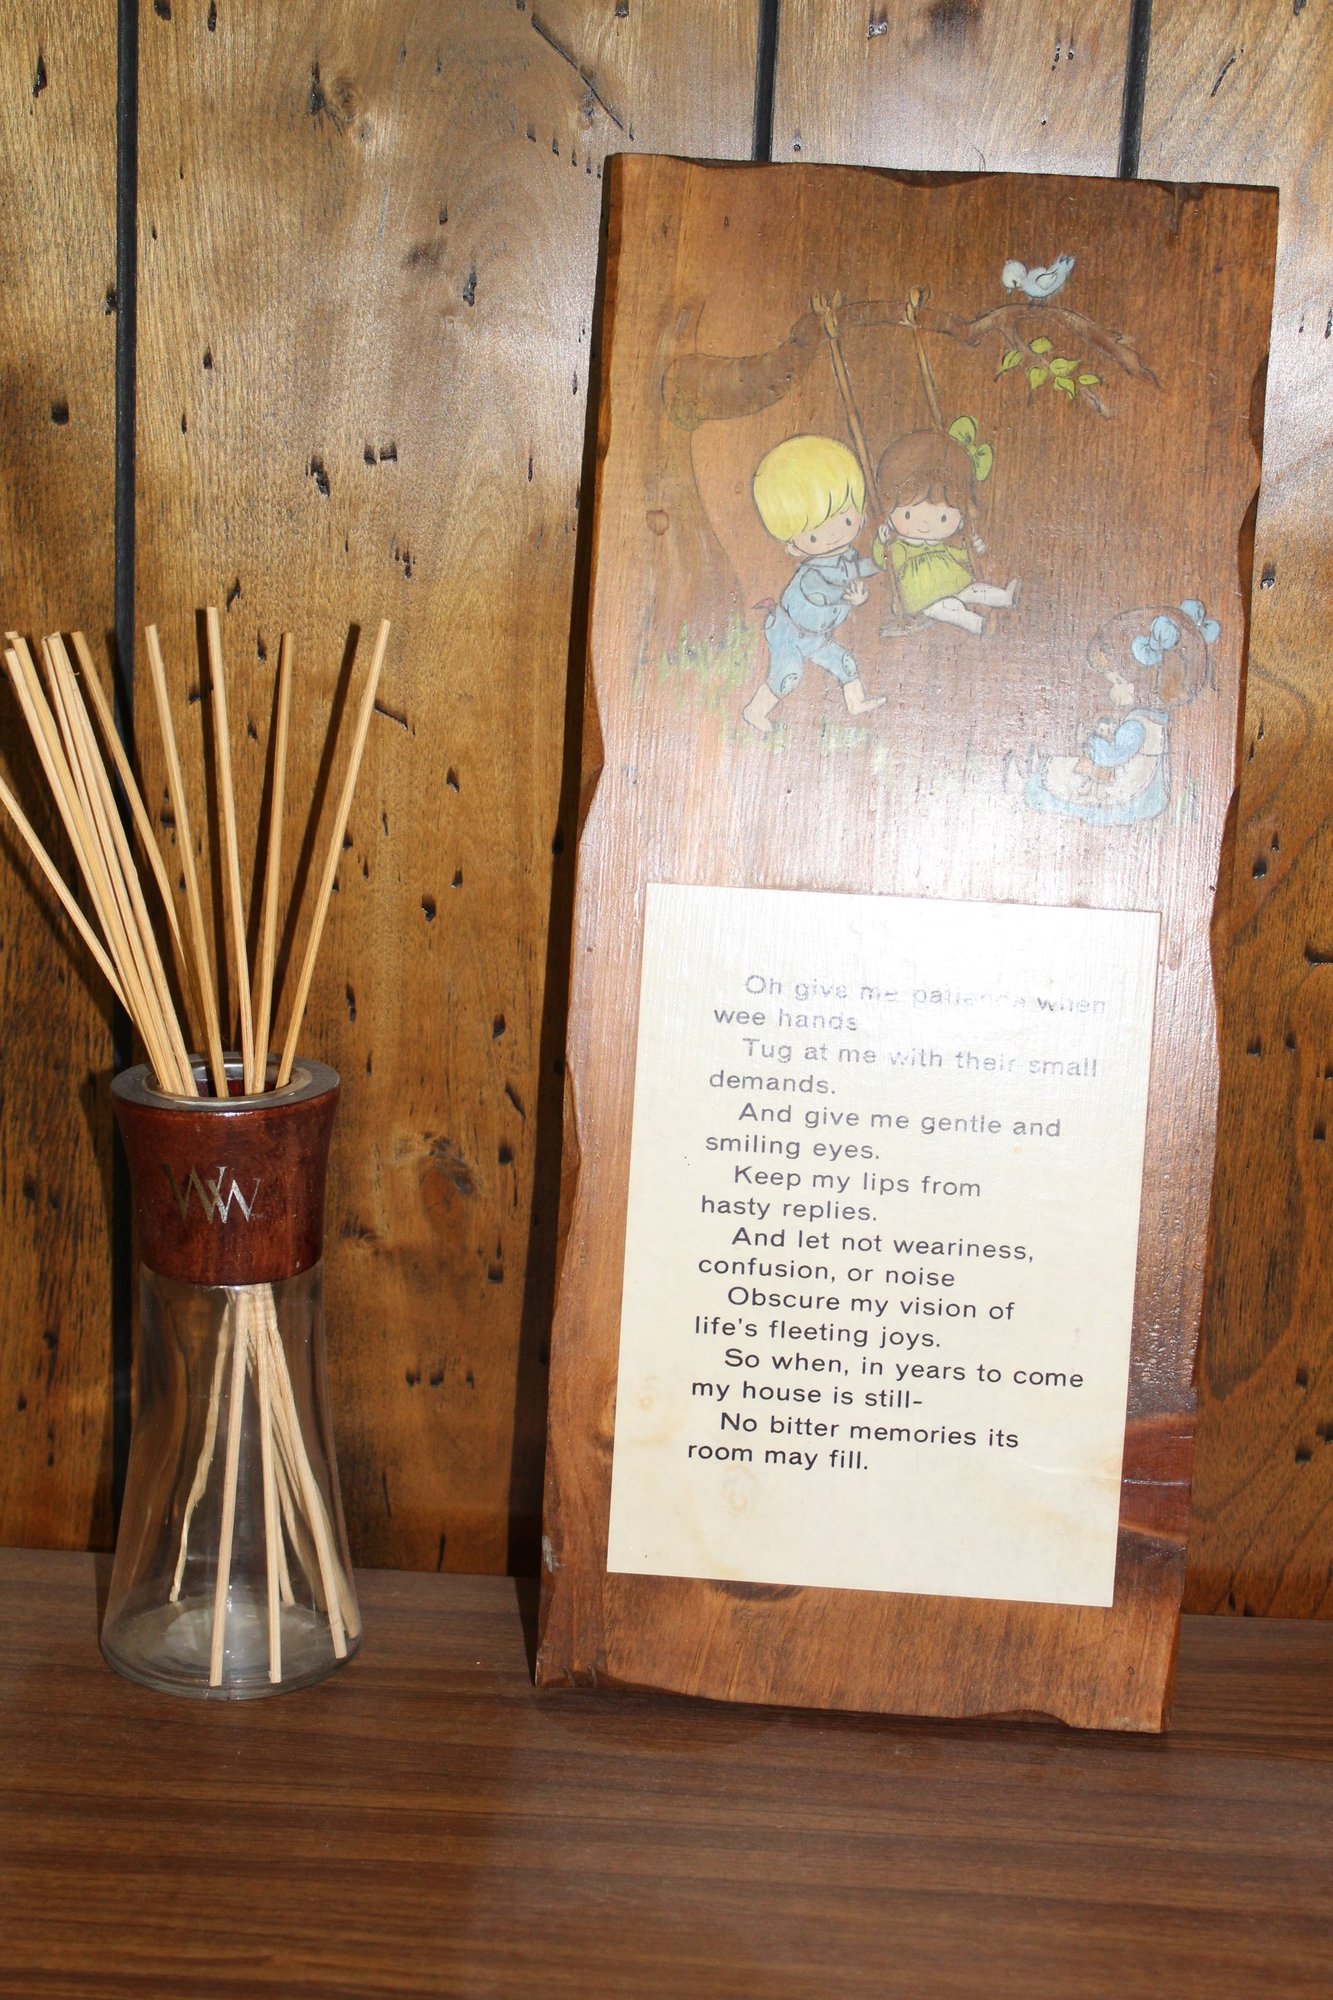 WW
Oh give me patience when
wee hands
Tug at me with their small
demands.
And give me gentle and
smiling eyes.
Keep my lips from
hasty replies.
And let not weariness,
confusion, or noise
Obscure my vision of
life's fleeting joys.
So when, in years to come
my house is still-
No bitter memories its
room may fill.